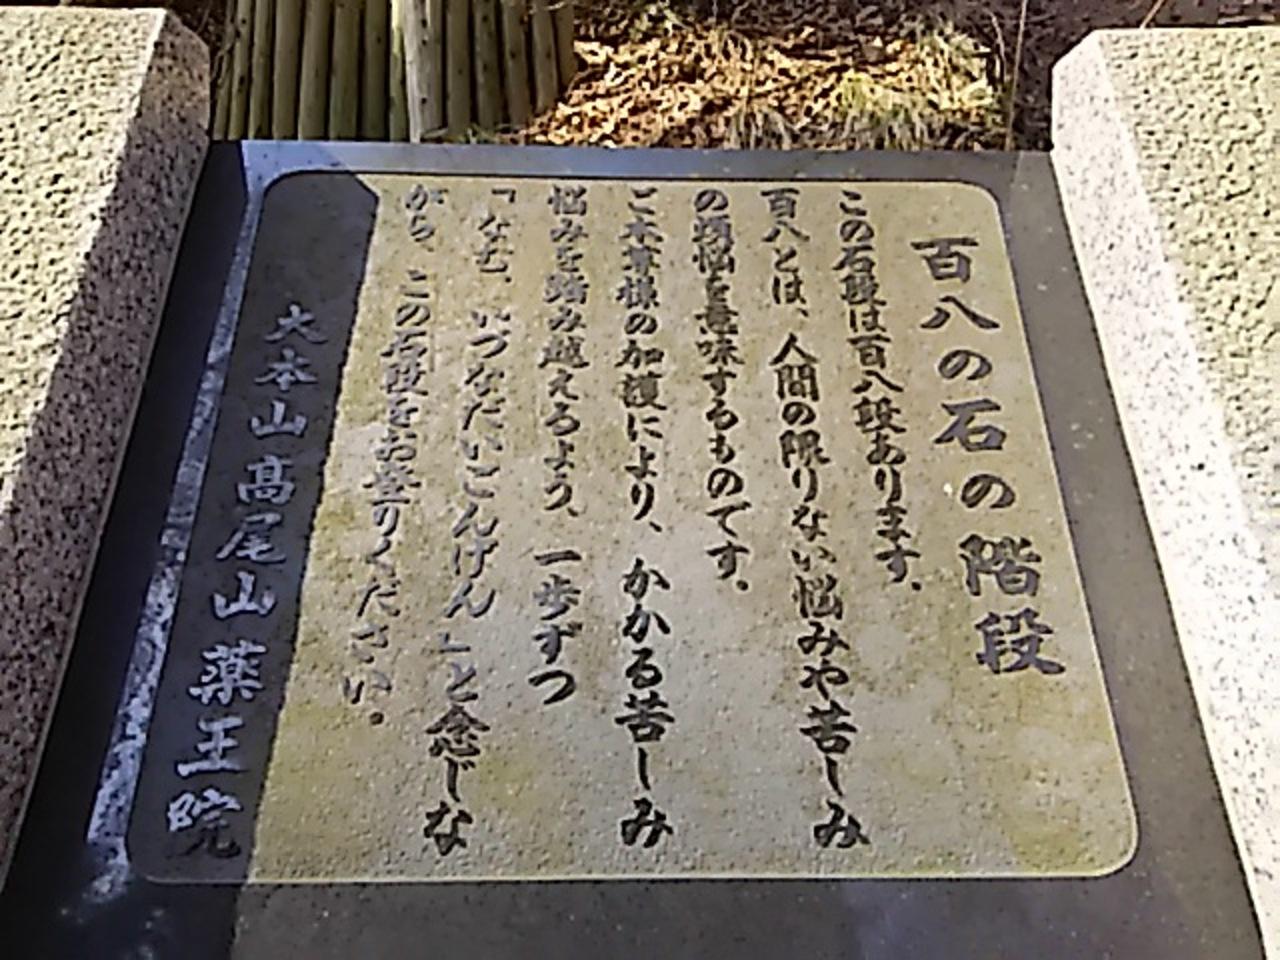 百八の石の階段
この石段は百八段あります。
百八とは、人間の限りない悩みや苦しみ
の煩悩を意味するものです。
ご本尊様の加護により、かかる苦しみ
悩みを踏み越えるよう、一歩ずつ
「なむ、いづなだいごんげん」と念じな
がら、この石段をお登りください。
大本山髙尾山薬王院